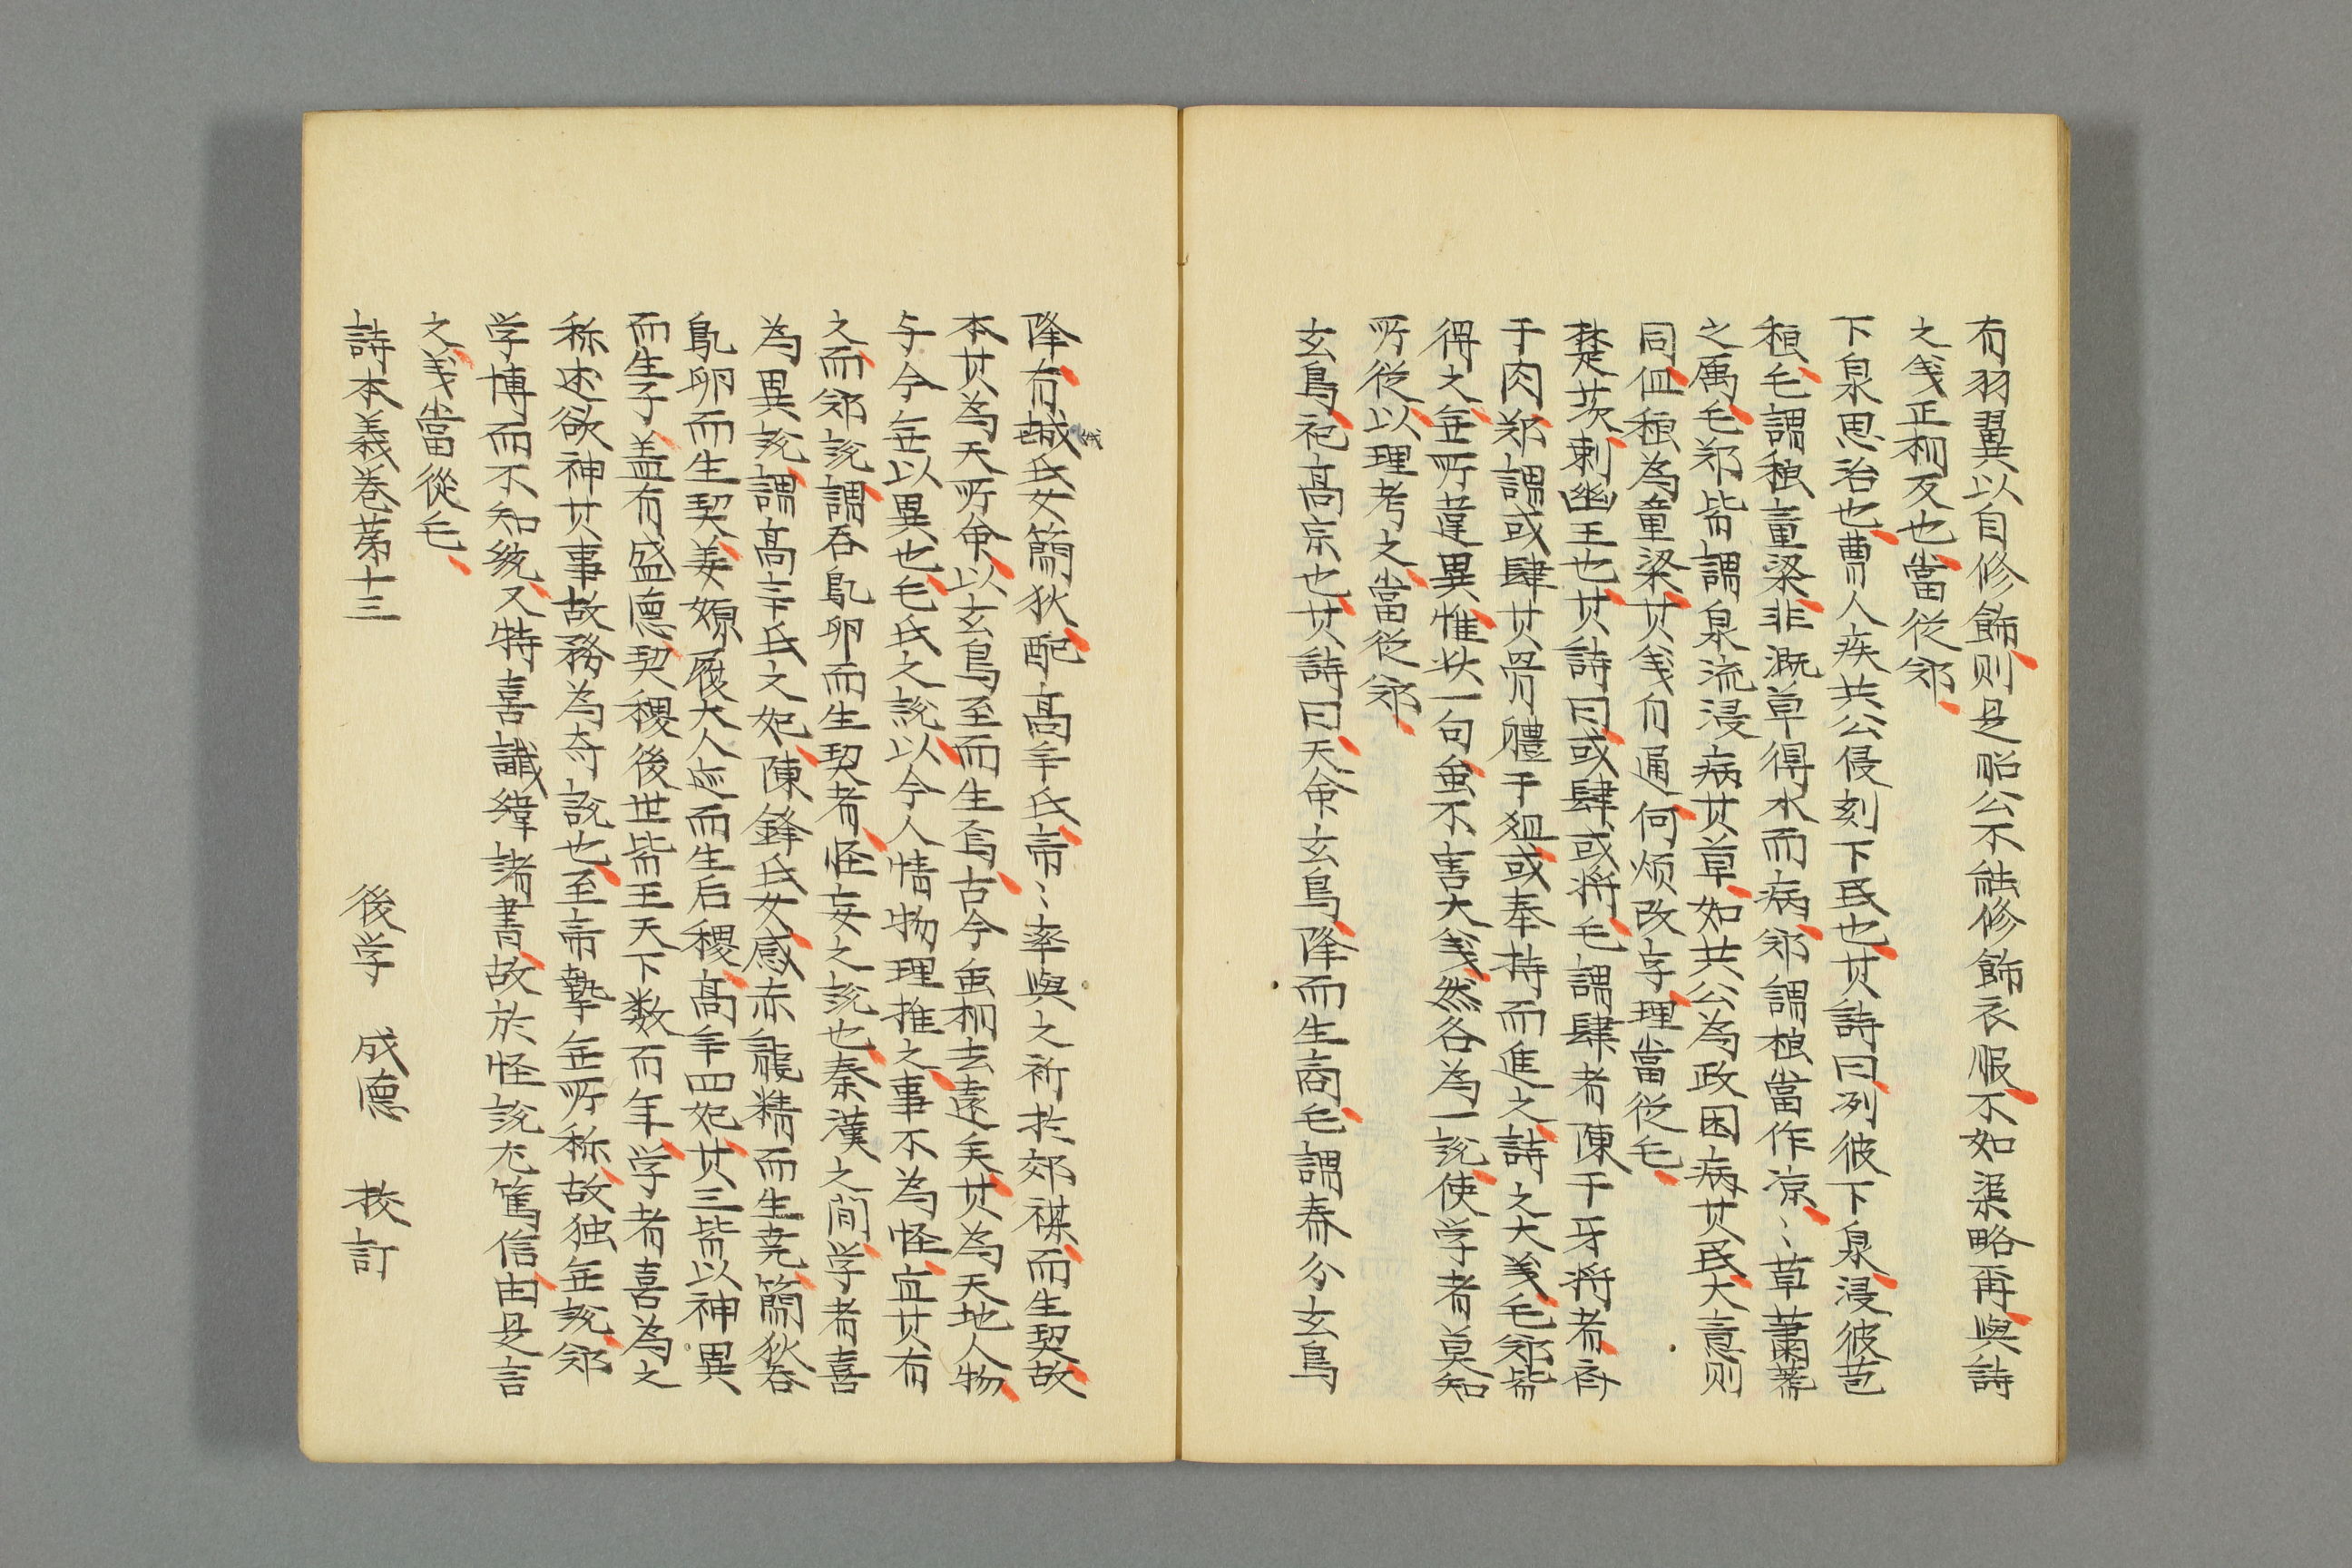 有羽翼以自修飾则是昭公不能修飾衣服不如渠略再與詩
之義正相反也當従郑
下泉思治也曹人疾共公侵刻下民也其詩曰冽彼下泉浸彼苞
稂毛謂稂童梁非溉草得水而病郑謂稂當作凉〻草蕭蓍
之属毛郑皆謂泉流浸病其草如共公為政困病其民大意则
同但稂為童梁其義自通何烦改字理當従毛
楚茨刺幽王也其詩曰或肆或将毛謂肆者陳于牙将者斉
于肉郑謂或肆其骨體于俎或奉持而進之詩之大義毛郑皆
得之無所違異惟此一句虽不害大義然各為一說使学者莫知
所従以理考之當従郑
玄鳥祀高宗也其詩曰天命玄鳥降而生商毛謂春分玄鳥
降有娀氏女簡狄配高辛氏帝〻率與之祈扵郊禖而生契故
娀
本其為天所命以玄鳥至而生焉古今虽相去遠矣其為天地人物
与今無以異也毛氏之說以今人情物理推之事不為怪宜其有
之而郑說謂吞鳦卵而生契者怪妄之說也秦漢之间学者喜
為異說謂高辛氏之妃陳鋒氏女感赤龍精而生堯簡狄吞
鳦卵而生契姜嫄履大人迹而生后稷高辛四妃其三皆以神異
而生子盖有盛德契稷後世皆王天下数百年学者喜為之
称述欲神其事故務為奇說也至帝摯無所称故独無說郑
学博而不知統又特喜讖緯諸書故於怪說尤篤信由是言
之義當從毛
詩本義卷苐十三
後学 成德 挍訂